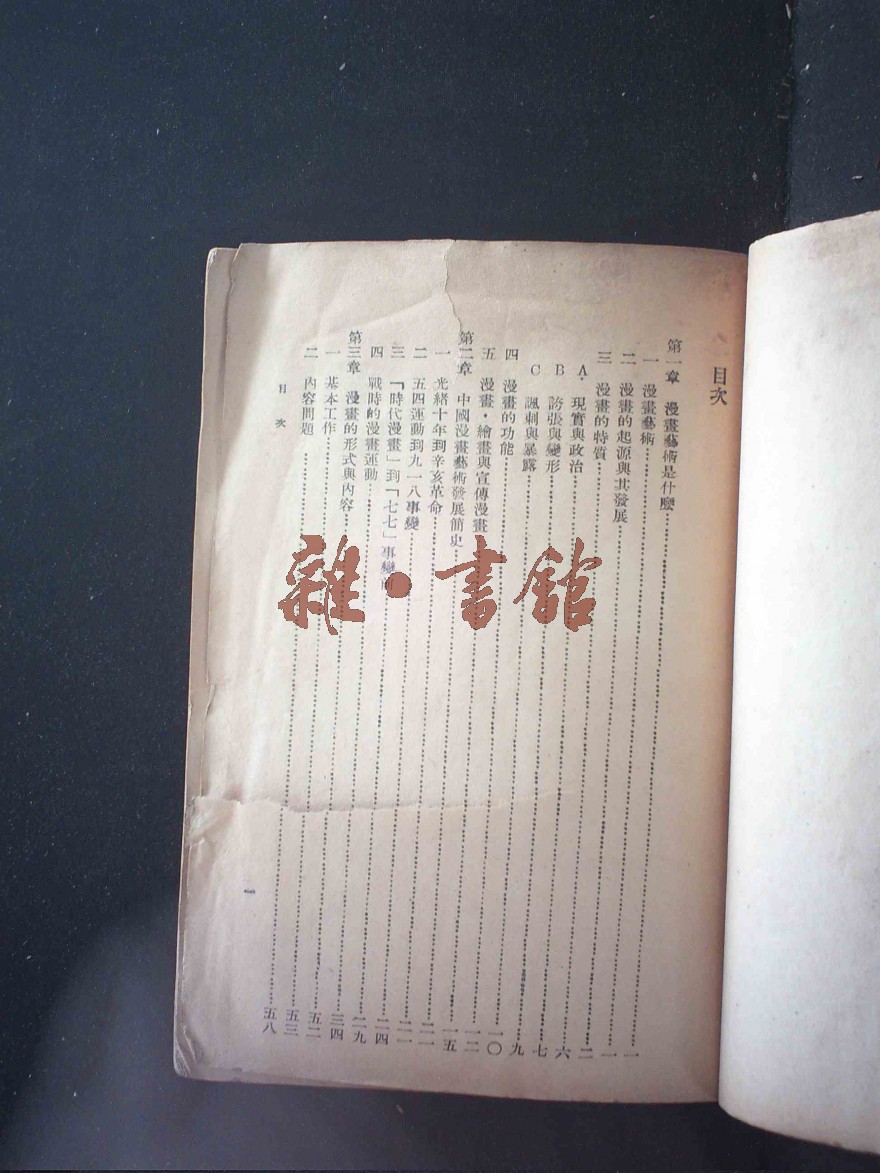 目次
第一章 漫畫藝術是什麼……一
一 漫畫藝術……一
二 漫畫的起源與其發展……二
三 漫畫的特質……六
A・現實與政治……七
B 誇張與變形……九
C 諷刺與暴露……一〇
四 漫畫的功能……一二
五 漫畫・繪畫與宣傳漫畫……一五
第二章 中國漫畫藝術發展簡史……二一
一 光緒十年到辛亥革命……二一
二 五四運動到九一八事變……二四
三 「時代漫畫」到「七七」事變前……二九
四 戰時的漫畫運動……三四
第三章 漫畫的形式與內容……五二
一 基本工作……五三
二 內容問題……五八
目次
一
雜・書館